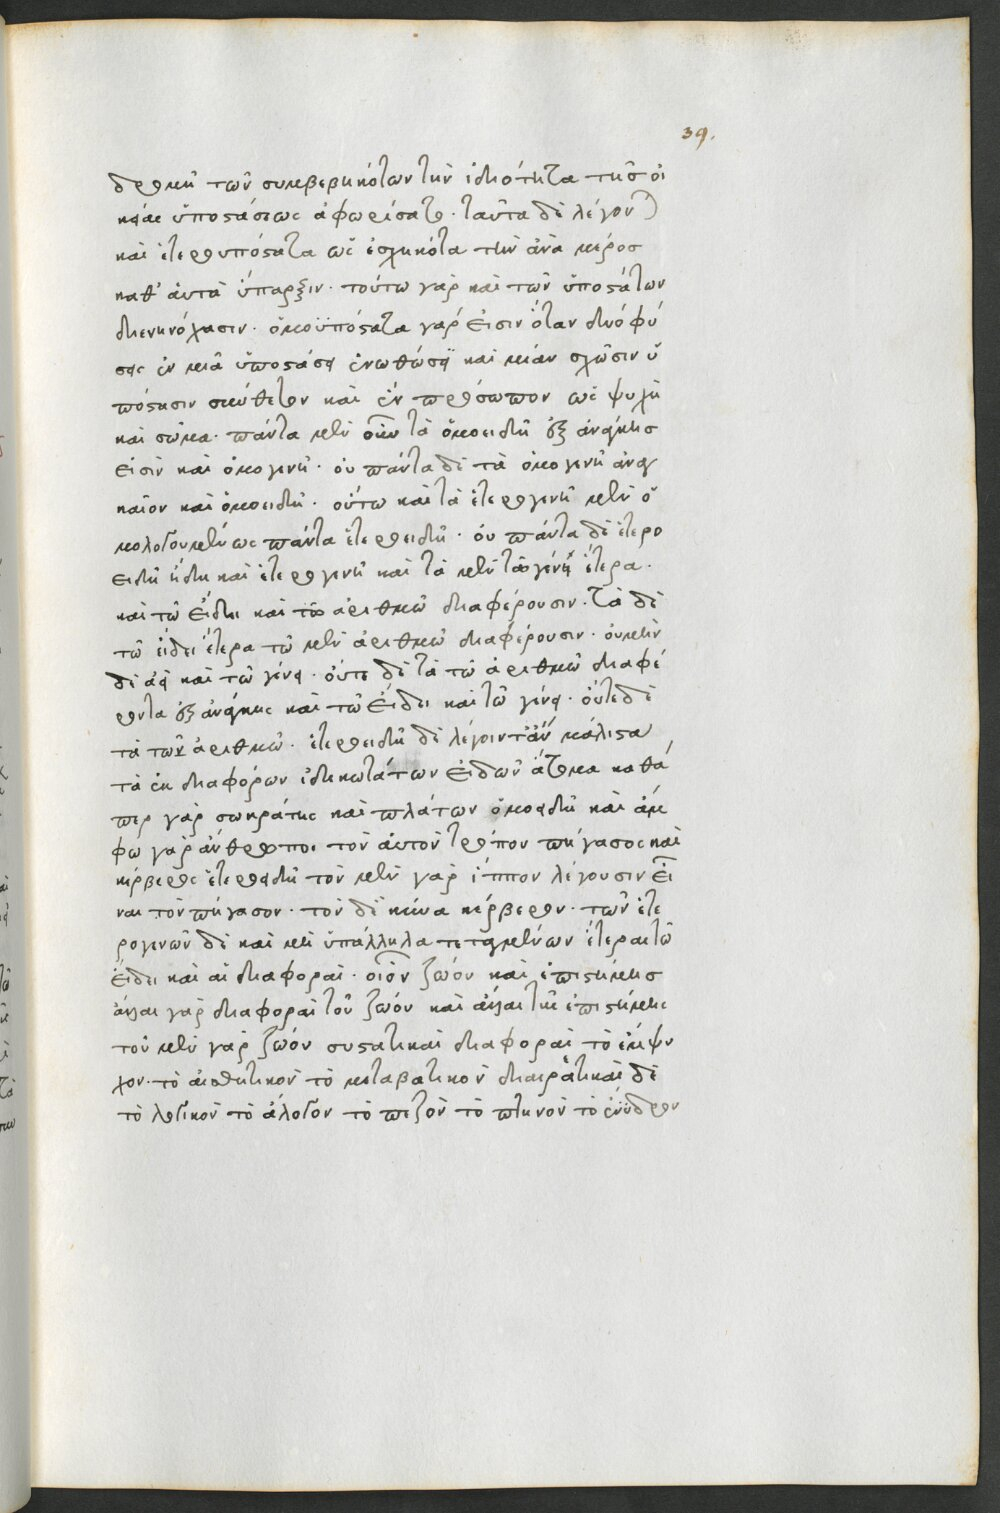 39.
δρομῆ τῶν συμβεβηκότων τὴν ἰδιότητα τῆς οἰ
κείας ὑποστάσεως ἀφωρίσατο. ταῦτα δὲ λέγον)
καὶ ἑτεροϋπόστατα ὡς ἐσχηκότα τὴν ἀνὰ μέρος
καθ' ἑαυτὰ ὕπαρξιν. τούτω γὰρ καὶ τῶν ὑποστάτων
διενηνόχασιν. ὁμοϋπόστατα γάρ εἰσιν ὅταν δύο φύ
σεις ἐν μιᾶ ὑποστάσει ἑνωθῶσι καὶ μίαν σχῶσιν ὑ
πόστασιν σύνθετον καὶ ἓν πρόσωπον ὡς ψυχὴ
καὶ σῶμα. πάντα μὲν οὖν τὰ ὁμοειδῆ ἐξ ἀνάγκης
εἰσὶν καὶ ὁμογενῆ. οὐ πάντα δὲ τὰ ὁμογενῆ ἀναγ
καῖον καὶ ὁμοειδῆ. οὕτω καὶ τὰ ἑτερογενῆ μὲν ὁ
μολογουμένως πάντα ἑτεροειδῆ. οὐ πάντα δὲ ἑτερο
ειδῆ ἤδη καὶ ἑτερογενῆ καὶ τὰ μὲν τῶ γένει ἕτερα.
καὶ τῶ εἴδει καὶ τῶ ἀριθμῶ διαφέρουσιν. τὰ δὲ
τῶ εἴδει ἕτερα τῶ μὲν ἀριθμῶ διαφέρουσιν. οὐ μὴν
δὲ ἀεὶ καὶ τῶ γένει. οὔτε δὲ τὰ τῶ ἀριθμῶ διαφέ
ροντα ἐξ ἀνάγκης καὶ τῶ εἴδει καὶ τῶ γένει. οὔτε δὲ
τὰ τῶν ἀριθμῶ. ἑτεροειδῆ δὲ λέγοιντ' ἂν μάλιστα
τὰ ἐκ διαφόρων ἰδικωτάτων εἰδῶν ἄτομα καθά
περ γὰρ σωκράτης καὶ πλάτων ὁμοειδῆ καὶ ἄμ
φω γὰρ ἄνθρωποι τὸν αὐτὸν τρόπον πήγασος καὶ
κέρβερος ἑτεροειδῆ τὸν μὲν γὰρ ἵππον λέγουσιν εἶ
ναι τὸν πήγασον. τὸν δὲ κύνα κέρβερον. τῶν ἑτε
ρογενῶν δὲ καὶ μὴ ὑπάλληλα τεταγμένων ἕτεραι τῶ
εἴδει καὶ αἱ διαφοραὶ. οἷον ζῶον καὶ ἐπιστήμης
ἄλλαι γὰρ διαφοραὶ τοῦ ζῶον καὶ ἄλλαι τῆς ἐπιστήμης
τοῦ μὲν γὰρ ζῶον συστατικαὶ διαφοραὶ τὸ ἔμψυ
χον. τὸ αἰσθητικὸν τὸ μεταβατικὸν διαιρετικαὶ δὲ
τὸ λογικὸν τὸ ἄλογον τὸ πεζὸν τὸ πτηνὸν τὸ ἔνυδρον